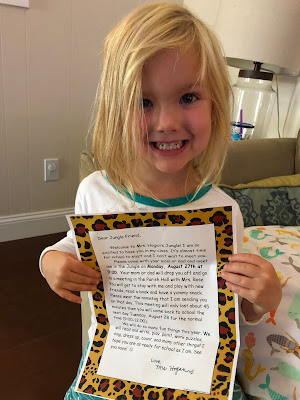 Dear Jungle Friend,
Welcome to Mrs. Hogan's Jungle! I am so
excited to have you in my class. It's almost time
for school to start and I can't wait to meet you.
Please come with your mom or dad and meet
me in the Jungle on Monday, August 27th at
9:00. Your mom or dad will drop you off and go
to a meeting in the Parish Hall with Mrs.
You will get to stay with me and play with new
friends, read a book and have a yummy snack.
Please wear the nametag that I am sending you
on that day. This meeting will only last about 45
minutes then you will come back to school the
next day Tuesday, August 28 for the normal
time (9:00-12:00).
We will do so many fun things this year. We
will read and write, play, paint, work puzzles,
sing, dress up, count, and many other things!! I
hope you are ready for school as I am. See
you soon. ☺
Love,
Mrs. Hogan